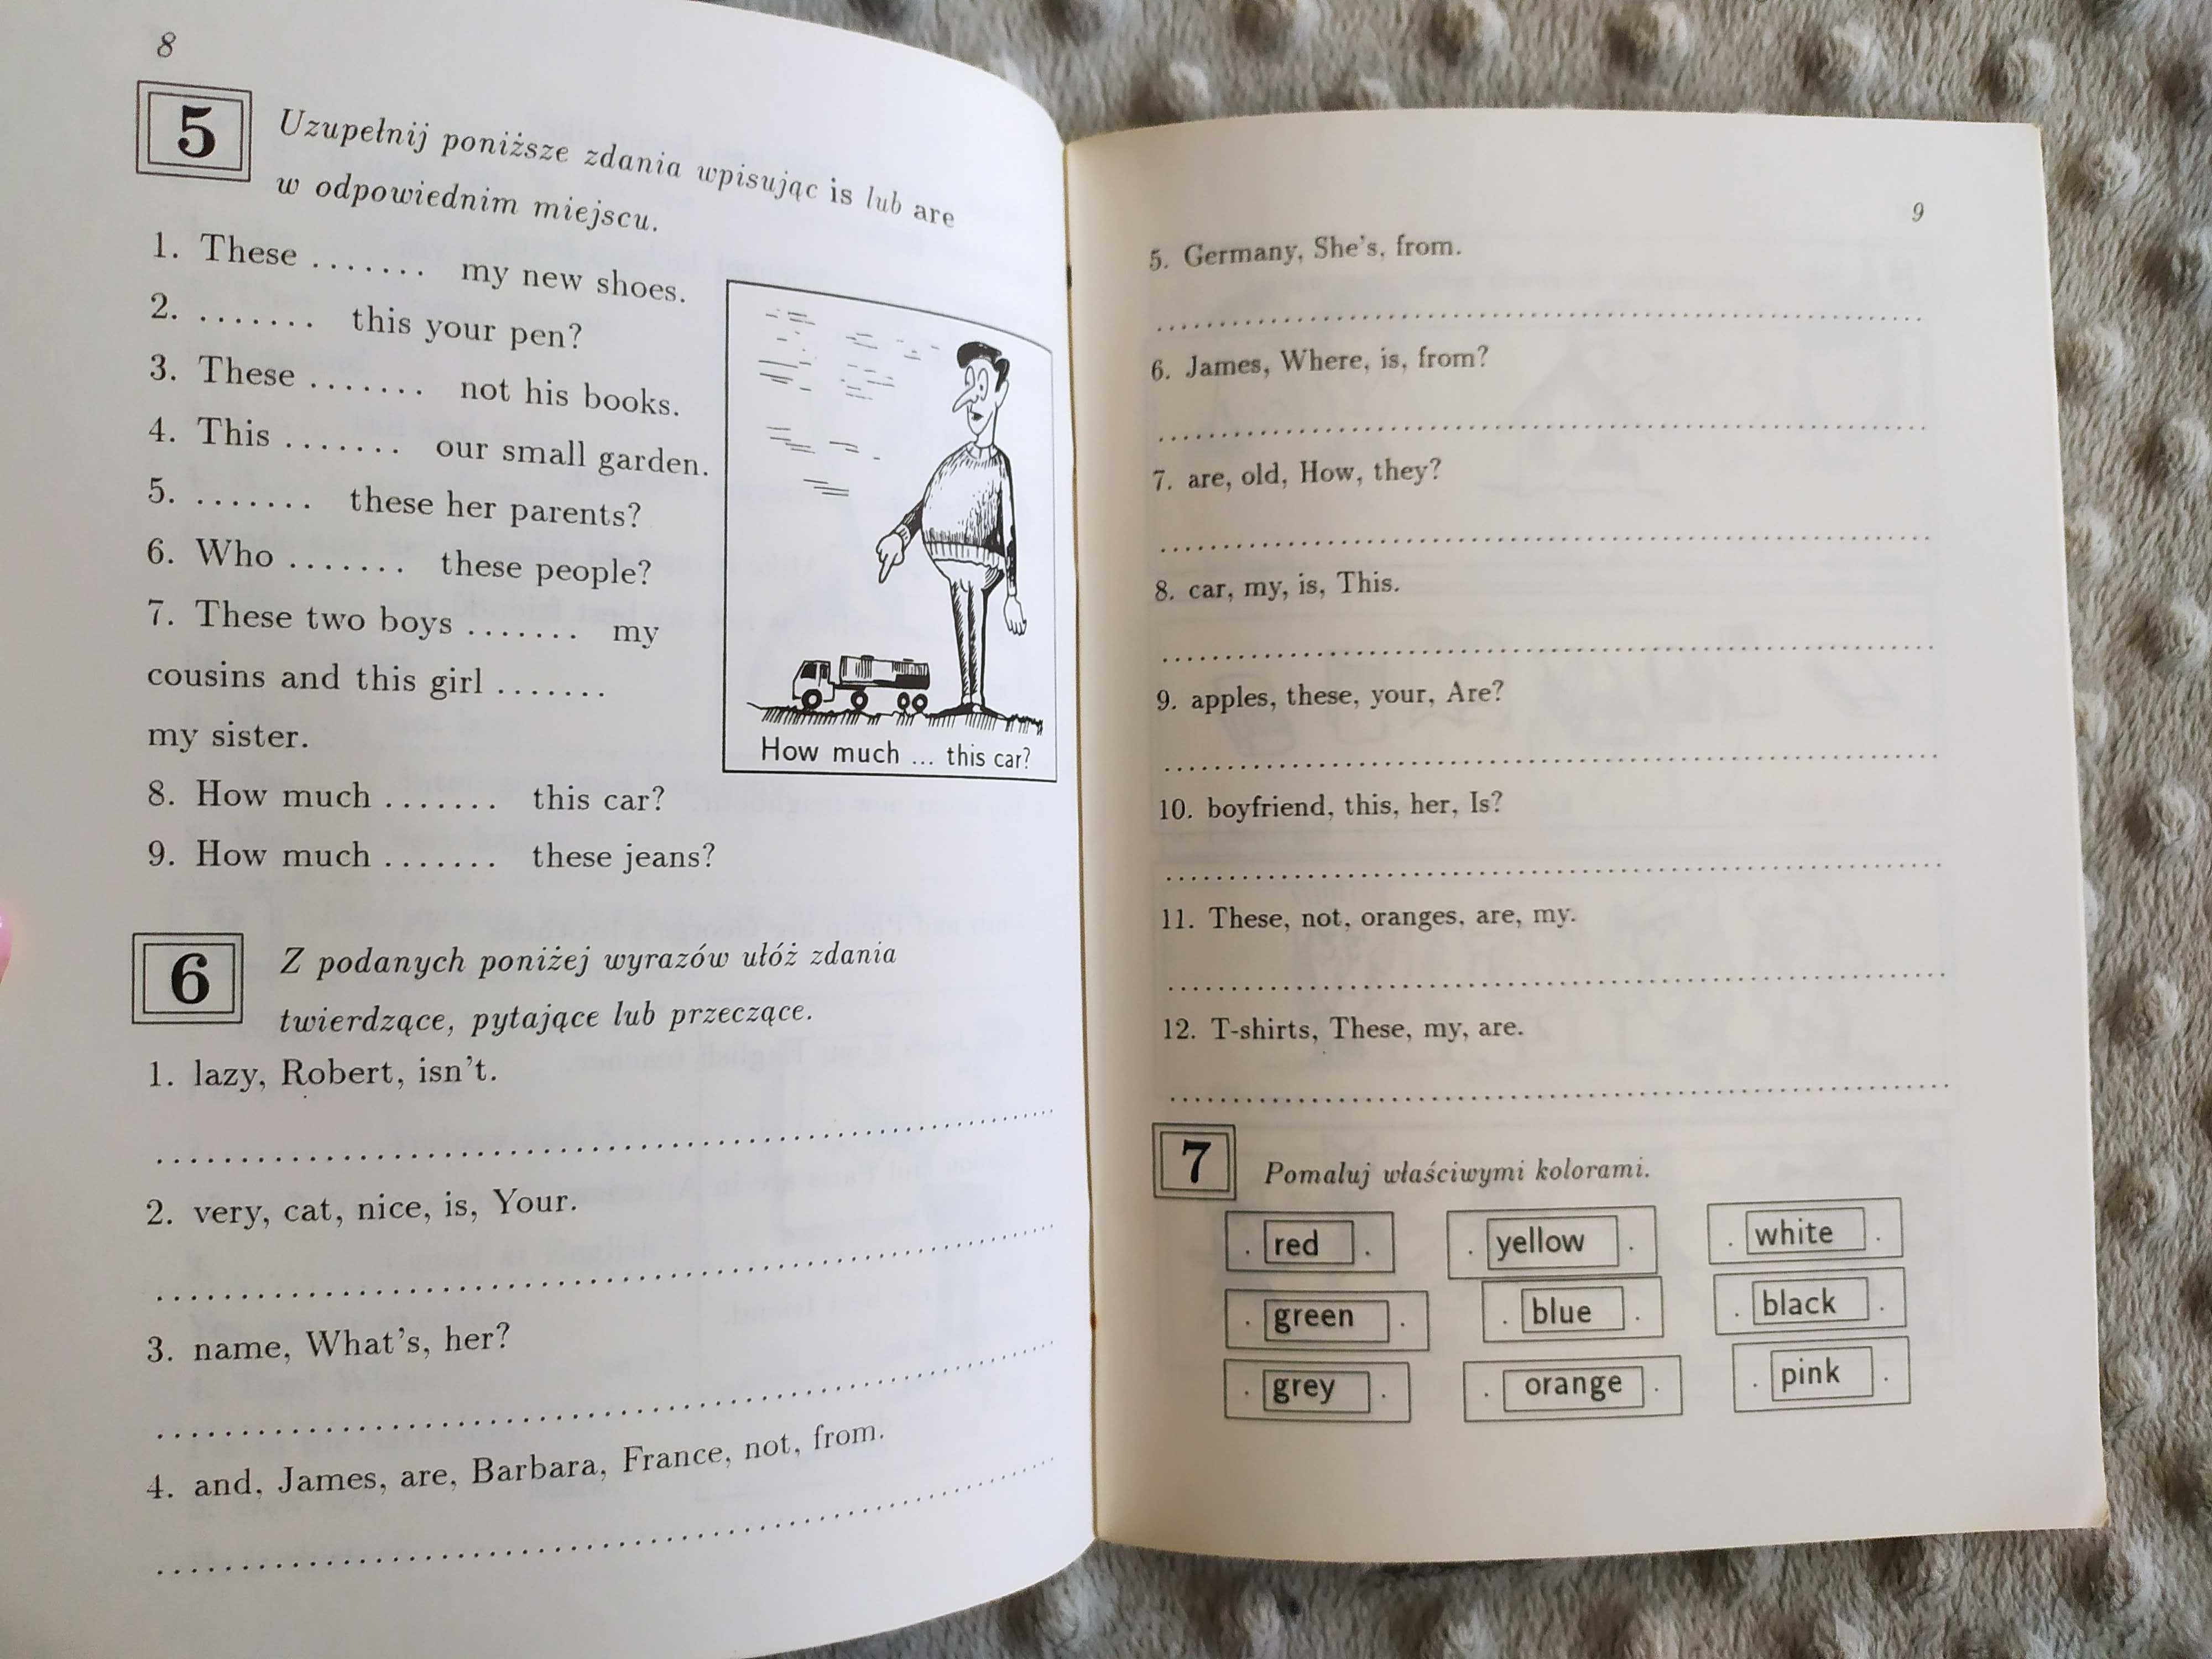 8
5
Uzupełnij poniższe zdania wpisując is lub are
w odpowiednim miejscu.
1. These ....... my new shoes.
2. ....... this your pen?
3. These ....... not his books.
4. This ....... our small garden.
5. ....... these her parents?
6. Who ....... these people?
7. These two boys ....... my
cousins and this girl .......
my sister.
8. How much ....... this car?
9. How much ....... these jeans?
How much ... this car?
6
Z podanych poniżej wyrazów ułóż zdania
twierdzące, pytające lub przeczące.
1. lazy, Robert, isn't.
2. very, cat, nice, is, Your.
3. name, What's, her?
4. and, James, are, Barbara, France, not, from.
9
5. Germany, She's, from.
6. James, Where, is, from?
7. are, old, How, they?
8. car, my, is, This.
9. apples, these, your, Are?
10. boyfriend, this, her, Is?
11. These, not, oranges, are, my.
12. T-shirts, These, my, are.
7
Pomaluj właściwymi kolorami.
. red . . yellow . . white .
. green . . blue . . black .
. grey . . orange . . pink .